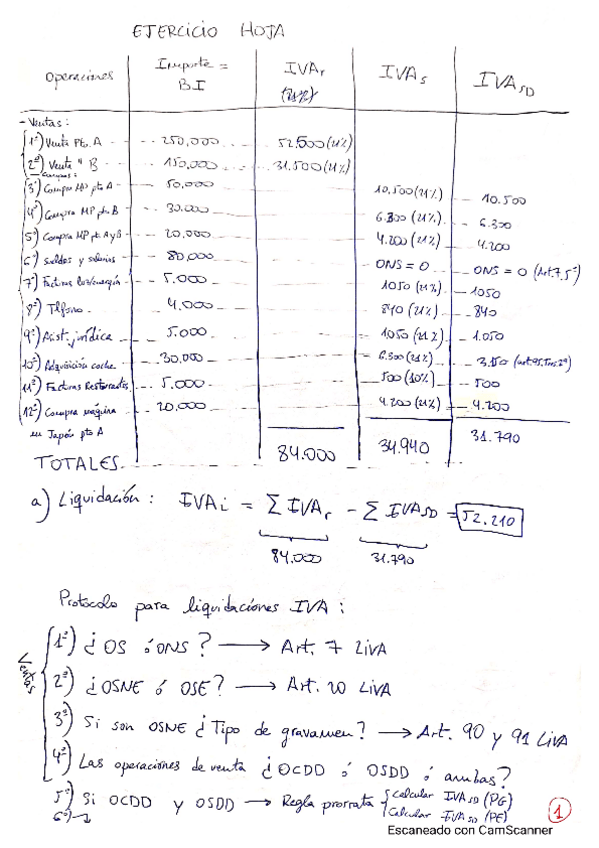 EJERCICIO HOJA
Operaciones Importe = BI IVAr (21%) IVAs IVASD
- Ventas:
1º) Venta Pto. A 250.000 52.500 (21%)
2º) Venta " B 150.000 31.500 (21%)
- Compras:
3º) Compra MP pto A 50.000 10.500 (21%) 10.500
4º) Compra MP pto B 30.000 6.300 (21%) 6.300
5º) Compra MP pto A y B 20.000 4.200 (21%) 4.200
6º) Sueldos y salarios 80.000 ONS = 0 ONS = 0 (Art. 7, 5º)
7º) Facturas luz/energía 5.000 1050 (21%) 1050
8º) Tlfono. 4.000 840 (21%) 840
9º) Asist. jurídica 5.000 1050 (21%) 1.050
10º) Adquisición coche 30.000 6.300 (21%) 3.150 (art. 95. Tres. 2º)
11º) Facturas Restaurantes 5.000 500 (10%) 500
12º) Compra máquina 20.000 4.200 (21%) 4.200
en Japón pto A
TOTALES 84.000 34.940 31.790
a) Liquidación: IVAi = Σ IVAr - Σ IVASD = 52.210
84.000 31.790
Protocolo para liquidaciones IVA:
Ventas
1º) ¿OS ó ONS? → Art. 7 LIVA
2º) ¿OSNE ó OSE? → Art. 20 LIVA
3º) Si son OSNE ¿Tipo de gravamen? → Art. 90 y 91 LIVA
4º) Las operaciones de venta ¿OCDD ó OSDD ó ambas?
5º) Si OCDD y OSDD → Regla prorrata { calcular IVASD (PG)
6º) → Calcular IVASD (PE)
1
Escaneado con CamScanner